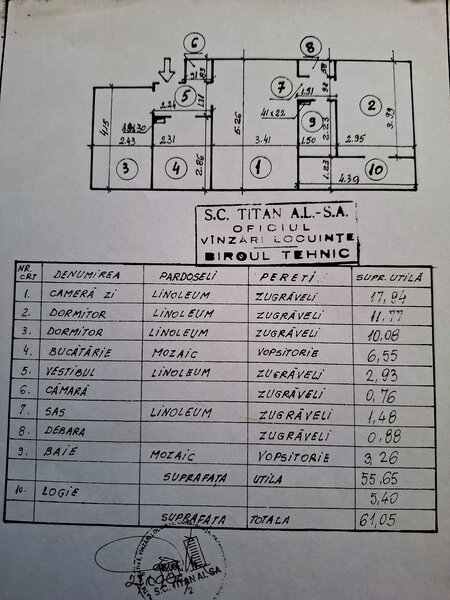 6
8
7
5
2
9
3
4
1
10
2.24
1.91
4.15
5.26
41 x 22
2.43
2.31
2.86
3.41
1.50
2.23
2.95
3.99
1.23
4.39
S.C. TITAN A.L.-S.A.
OFICIUL
VÎNZĂRI LOCUINȚE
BIROUL TEHNIC
NR. CRT DENUMIREA PARDOSELI PEREȚI SUPR. UTILĂ
1. CAMERĂ ZI LINOLEUM ZUGRĂVELI 17,94
2. DORMITOR LINOLEUM ZUGRĂVELI 11,77
3. DORMITOR LINOLEUM ZUGRĂVELI 10,08
4. BUCĂTĂRIE MOZAIC VOPSITORIE 6,55
5. VESTIBUL LINOLEUM ZUGRĂVELI 2,93
6. CĂMARĂ ZUGRĂVELI 0,76
7. SAS LINOLEUM ZUGRĂVELI 1,48
8. DEBARA ZUGRĂVELI 0,88
9. BAIE MOZAIC VOPSITORIE 3,26
SUPRAFAȚA UTILA 55,65
10. LOGIE 5,40
SUPRAFAȚA TOTALA 61,05
S.C. TITAN AL SA
2